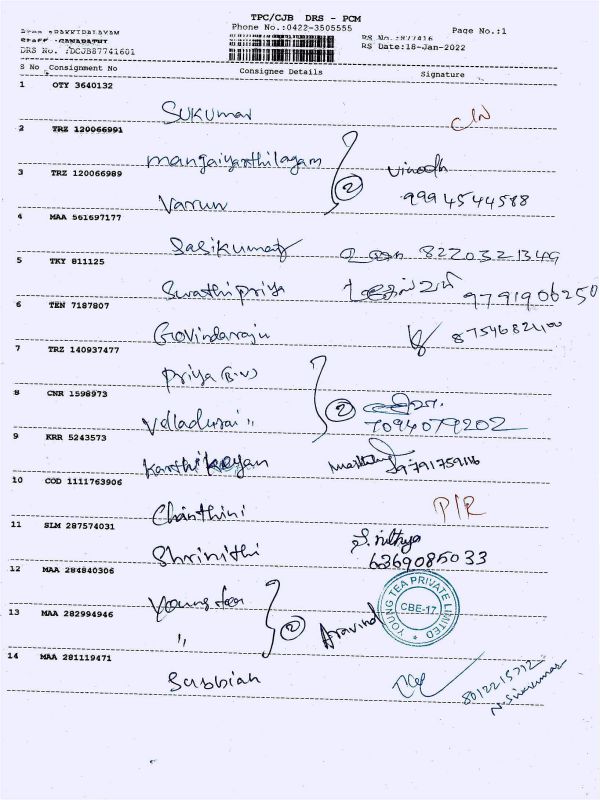 TPC/CJB DRS - PCM
Phone No.:0422-3505555
Page No.:1
RS No.:877416
DRS No. :DCJB87741601
RS Date:18-Jan-2022
S No Consignment No Consignee Details Signature
1 OTY 3640132
Sukumar
2 TRZ 120066991
mangaiyarthilagam
3 TRZ 120066989
Vinodh
Varrun 2 9994544588
4 MAA 561697177
Sasikumar 8220321349
5 TKY 811125
Swathipriya 9791906250
6 TEN 7187807
Govindaraju
7 TRZ 140937477
Priya
8 CNR 1598973
2
Velladurai " 7094079202
9 KRR 5243573
Karthikeyan
10 COD 1111763906
Chanthini
11 SLM 287574031
S. Nithya
Shrinithi 6369085033
12 MAA 284840306
Young tea
13 MAA 282994946
" 2 Aravind
YOUNG TEA PRIVATE LIMITED
CBE-17
14 MAA 281119471
Subbiah
8012215712
N. Sivakumar